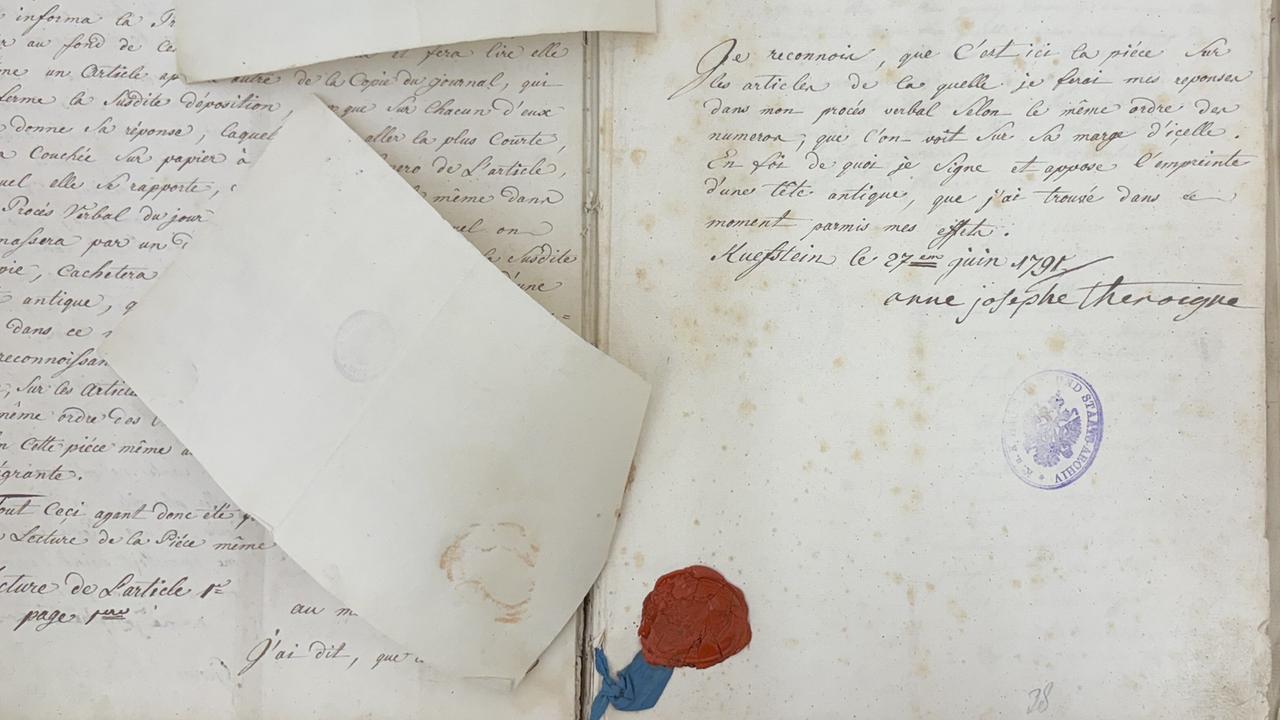 informa la
au fond de
et fera lire elle
un Article
autre de la Copie du journal, qui
ferme la Susdite déposition,
que Sur Chacun d'eux
donne Sa réponse,
aller la plus Courte,
Couchée Sur papier à
numero de L'article,
elle Se rapporte,
même dans
Procés Verbal du jour
on
par un
la Susdite
Cachetera
d'une
antique,
dans ce
Sur les Article
même ordre des
Cette piéce même
Tout Ceçi ayant donc été
Lecture de la Piéce même
Lecture de L'article 1er
page 1ere
au
J'ai dit, que
Je reconnois, que C'est ici la piéce Sur
les articles de la quelle je ferai mes reponses
dans mon procés verbal Selon le même ordre des
numeros, que l'on voit Sur Sa marge d'icelle.
En foi de quoi je Signe et appose l'empreinte
d'une tête antique, que j'ai trouvé dans ce
moment parmis mes effets.
Kuefstein le 27em juin 1791
anne josephe theroigne
K. U. K. HAUS- HOF- UND STAATS-ARCHIV
38